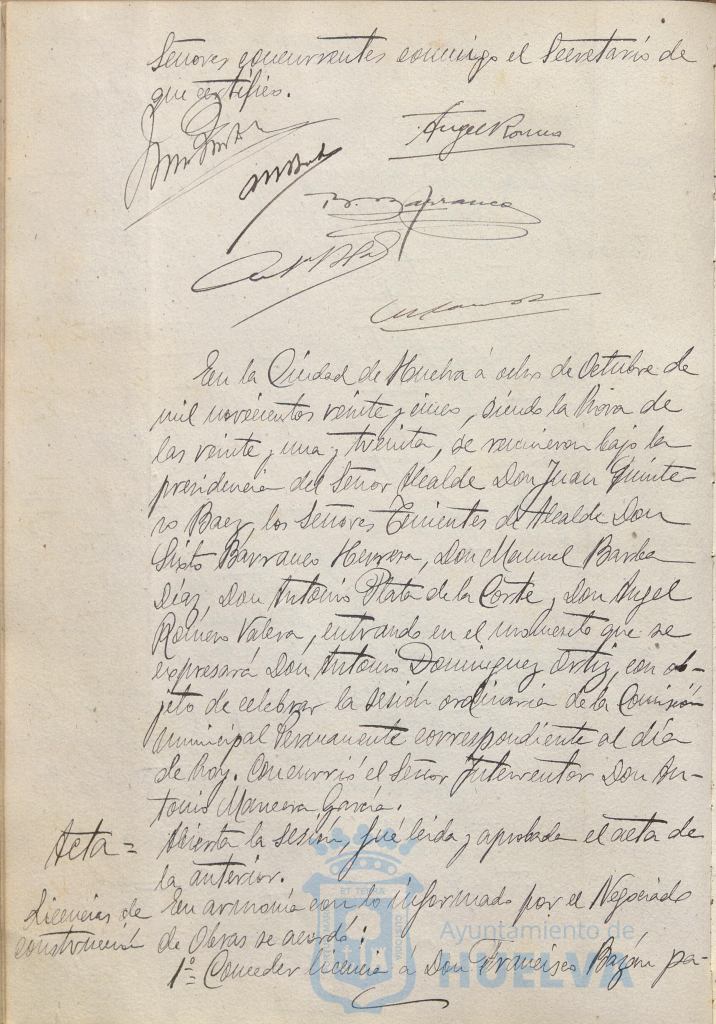 Señores concurrentes conmigo el Secretario de
que certifico.
Angel Romero
S. Barranco
En la Ciudad de Huelva á ocho de Octubre de
mil novecientos veinte y cinco, siendo la hora de
las veinte y una y treinta, se reunieron bajo la
presidencia del Señor Alcalde Don Juan Quinte-
ro Baez, los Señores Tenientes de Alcalde Don
Sixto Barranco Herrera, Don Manuel Barba
Díaz, Don Antonio Plata de la Corte y Don Angel
Romero Valera, entrando en el momento que se
expresará Don Antonio Dominguez Ortiz, con ob-
jeto de celebrar la sesión ordinaria de la Comisión
municipal Permanente correspondiente al día
de hoy. Concurrió el Señor Interventor Don An-
tonio Mancera García.
Acta = Abierta la sesión, fué leida y aprobada el acta de
la anterior.
Licencias de construcción
En armonía con lo informado por el Negociado
de Obras se acordó:
1º = Conceder licencia a Don Francisco Bazán pa-
Ayuntamiento de
HUELVA